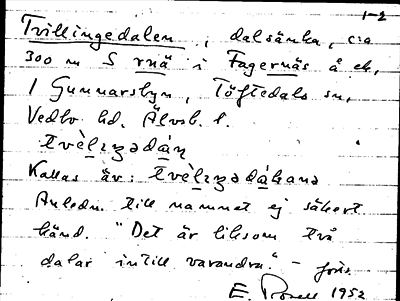 1-2
Tvillingedalen, dalsänka, c:a
300 m S rnä i Fagernäs å ek,
1 Gunnarsbyn, Töftedals sn,
Vedbo hd. Älvsb. l.
Kallas äv:
Anledn. till namnet ej säkert
känd. "Det är liksom två
dalar intill varandra." –
E. 1952